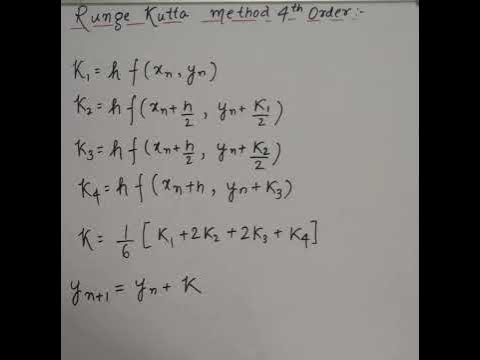 Runge Kutta method 4th Order:-
K₁ = h f(xₙ, yₙ)
K₂ = h f(xₙ + h/2, yₙ + K₁/2)
K₃ = h f(xₙ + h/2, yₙ + K₂/2)
K₄ = h f(xₙ + h, yₙ + K₃)
K = 1/6 [K₁ + 2K₂ + 2K₃ + K₄]
yₙ₊₁ = yₙ + K